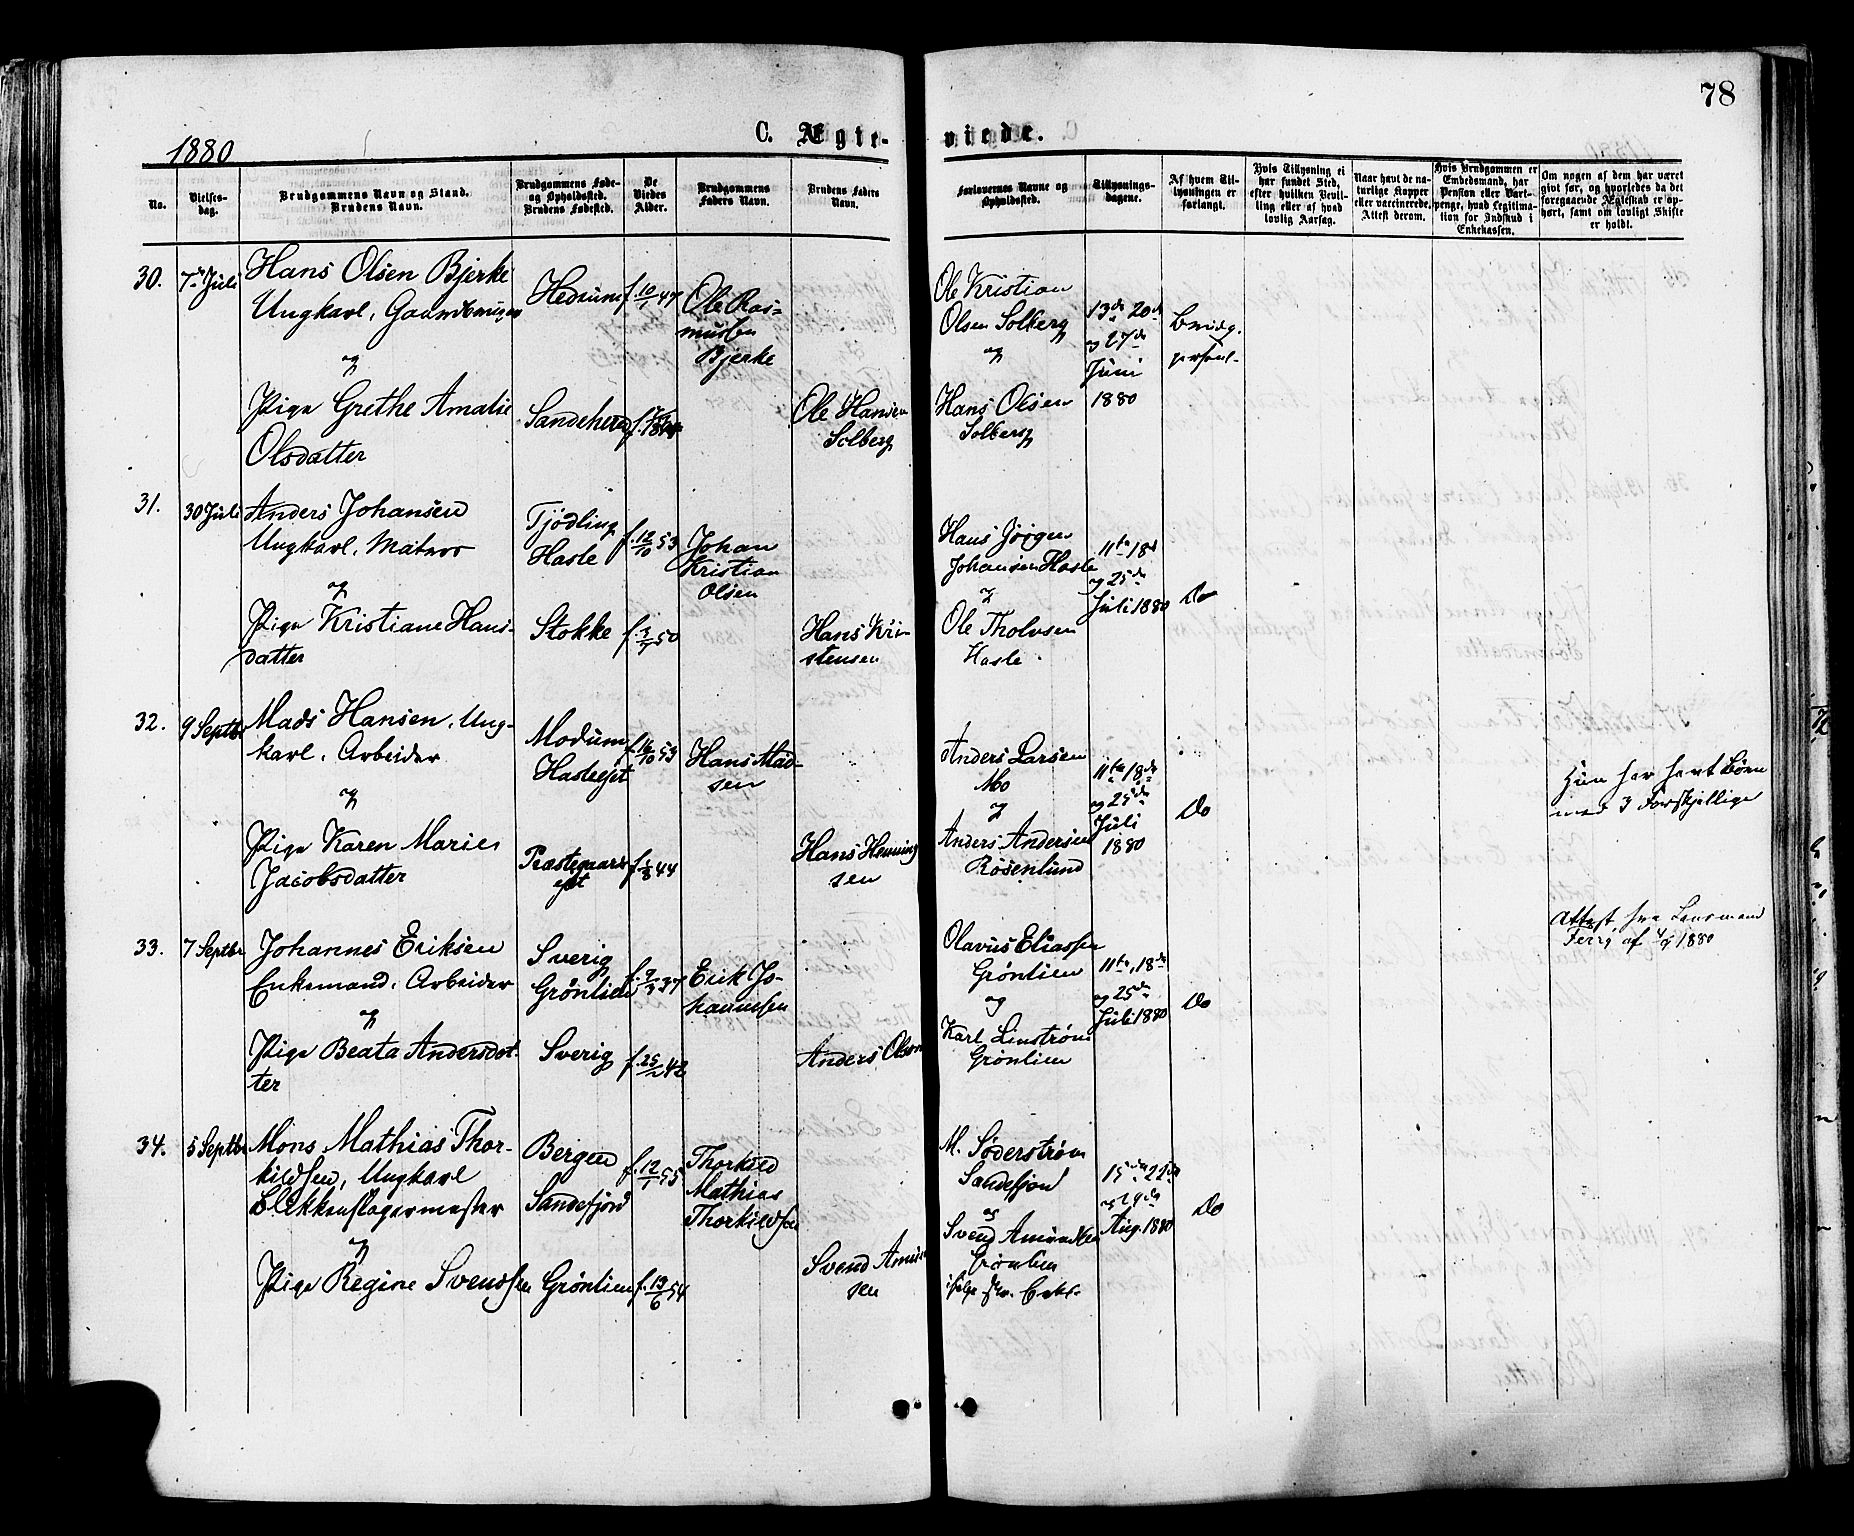 78
1880
C. Ægte-
viede.
No.
Vielses-
dag.
Brudgommens Navn og Stand.
Brudens Navn.
Brudgommens Føde-
og Opholdssted.
Brudens Fødested.
De
Viedes
Alder.
Brudgommens
Faders Navn.
Brudens Faders
Navn.
Forlovernes Navne og
Opholdssted.
Tillysnings-
dagene.
Af hvem Til-
lysningen er
forlangt.
Hvis Tillysning ei
har fundet Sted,
efter hvilken Bevil-
ling eller af hvad
lovlig Aarsag.
Naar havt de na-
turlige Kopper
eller vaccinerede,
Attest derom.
Hvis Brudgommen er
Embedsmand, har
Pension eller Vart-
penge, hvad Legitima-
tion for Indskud i
Enkekassen.
Om nogen af dem har været
givt før, og hvorledes da det
foregaaende Ægteskab er op-
hørt, samt om lovligt Skifte
er holdt.
30.
7de Juli
Hans Olsen Bjerke
Ungkarl, Gaardbruger
og
Pige Grethe Amalie
Olsdatter
Hedrum
Sandeherred
f. 10/1 47
Ole Ras-
mussen
Bjerke
Ole Hansen
Solberg
Ole Kristian
Olsen Solberg
og
Hans Olsen
Solberg
13de 20de
og 27de
Juni
1880
Brudg.
31.
30 Juli
Anders Johansen
Ungkarl, Matros
og
Pige Kristiane Hans-
datter
Tjødling
Hasle
Stokke
f. 12/10 53
f. 3/7 50
Johan
Kristian
Olsen
Hans Kri-
stensen
Hans Jørgen
Johansen Hasle
og
Ole Tholvsen
Hasle
11te 18de
og 25de
Juli 1880
Do
32.
9 Septbr
Mads Hansen, Ung-
karl, Arbeider
og
Pige Karen Marie
Jacobsdatter
Modum
Hasleejet
Præstegaards
ejet
f. 16/10 53
f. 5/8 44
Hans Mad-
sen
Hans Henning
sen
Anders Larsen
Mo
og
Anders Andersen
Rosenlund
11te 18de
og 25de
Juli
1880
Do
Hun har havt Børn
med 3 Forskjellige
33.
7 Septbr
Johannes Eriksen
Enkemand, Arbeider
og
Pige Beata Andersdat-
ter
Sverig
Grönlien
Sverig
f. 9/3 37
f. 25/2 42
Erik Jo-
hannessen
Anders Olsen
Olavus Eliassen
Grönlien
og
Karl Linström
Grönlien
11te, 18de
og 25de
Juli 1880
Do
Attest fra Lensmand
af 4/9 1880
34.
5 Septbr
Mons Mathias Thor-
kildsen, Ungkarl
Blikkenslagermester
og
Pige Regine Svendsen
Bergen
Sandefjord
Grönlien
f. 12/1 55
f. 13/6 54
Thorkild
Mathias
Thorkildsen
Svend Amun
sen
M. Söderström
Sandefjord
og
Svend Amundsen
Grönlien
15de 22de
og 29de
Aug. 1880
Do